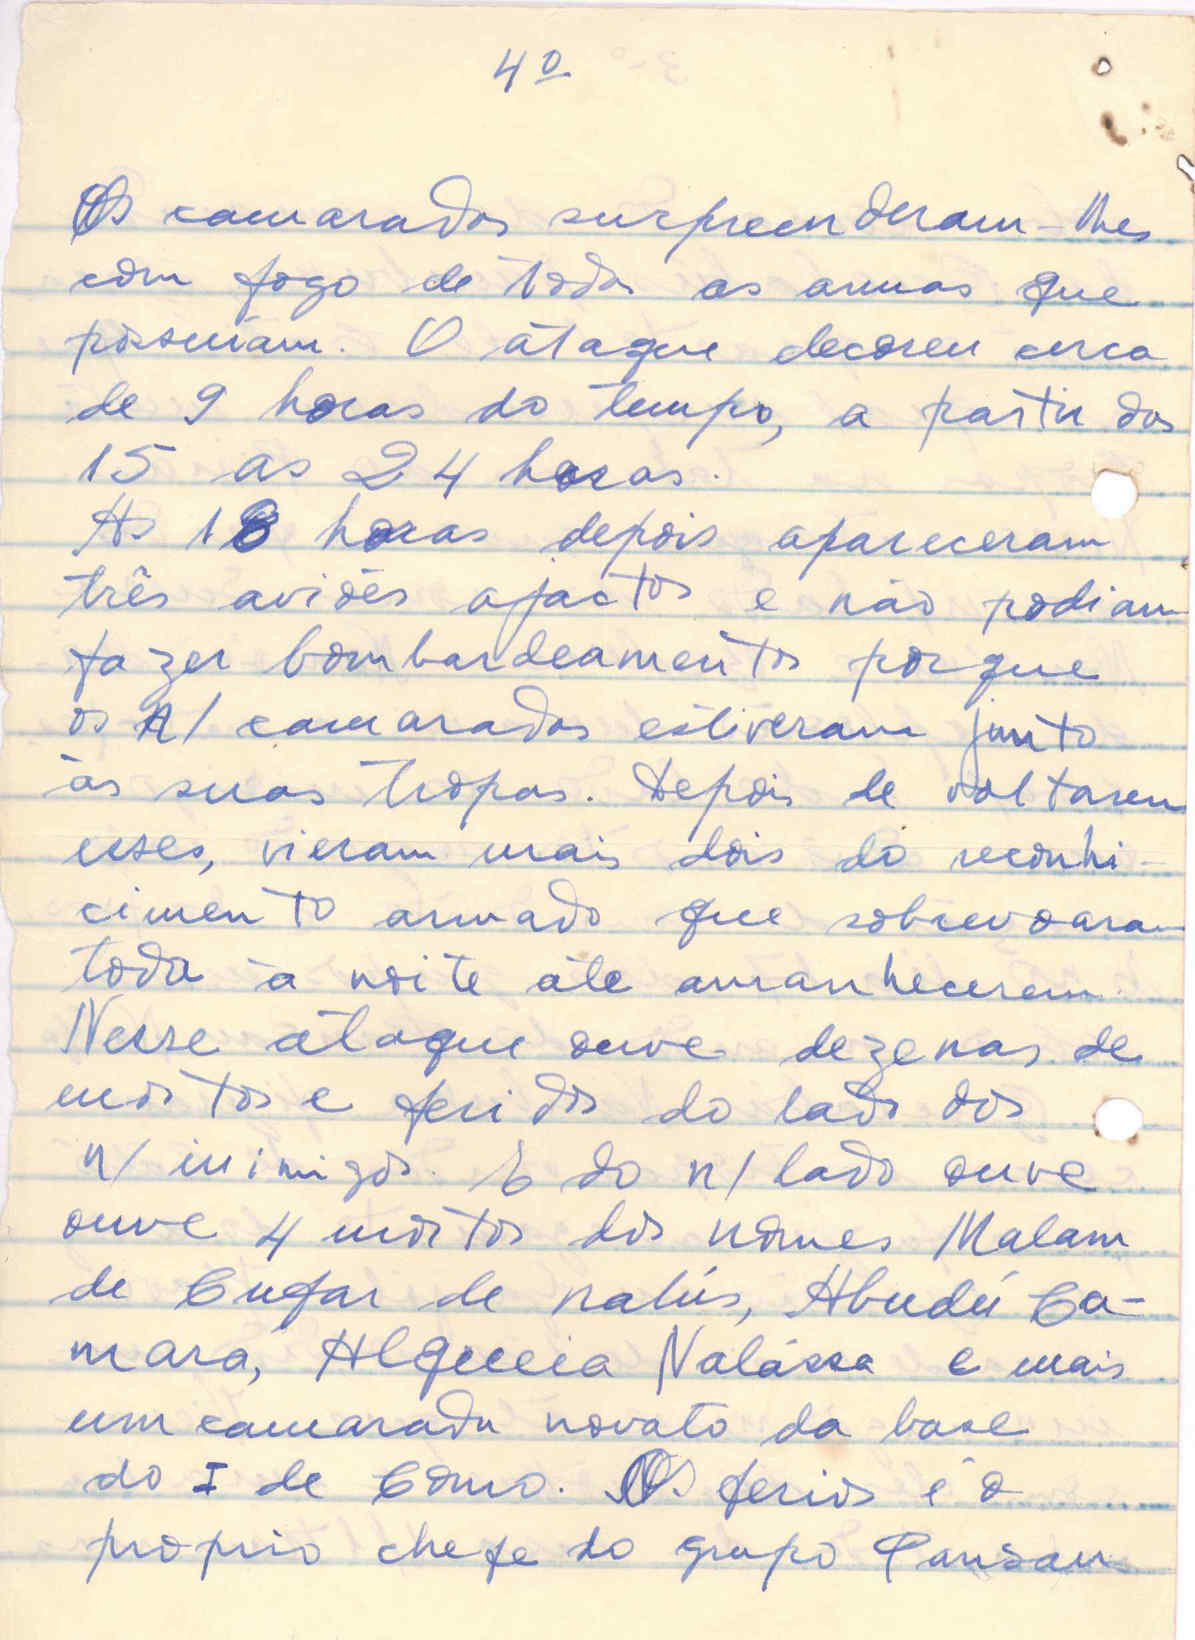 4º
Os camaradas surpreenderam-lhes
com fogo de todas as armas que
possuiam. O átaque decoreu cerca
de 9 horas do tempo, a partir das
15 as 24 horas.
As 18 horas depois apareceram
três aviões ajactos e não podiam
fazer bombardeamentos porque
os n/ camaradas estiveram junto
às suas tropas. Depois de voltarem
esses, vieram mais dois do reconhi-
cimento armado que sobrevoaram
toda à noite áte amanhecerem.
Nesse átaque ouve dezenas de
mortos e feridos do lado dos
n/ inimigos. E do n/ lado ouve
ouve 4 mortos dos nomes Malam
de Cufar de nalús, Abudú Ca-
mara, Alqueia Nalássa e mais
um camarada novato da base
do I de Como. Os ferios é o
proprio chefe do grupo Pansau